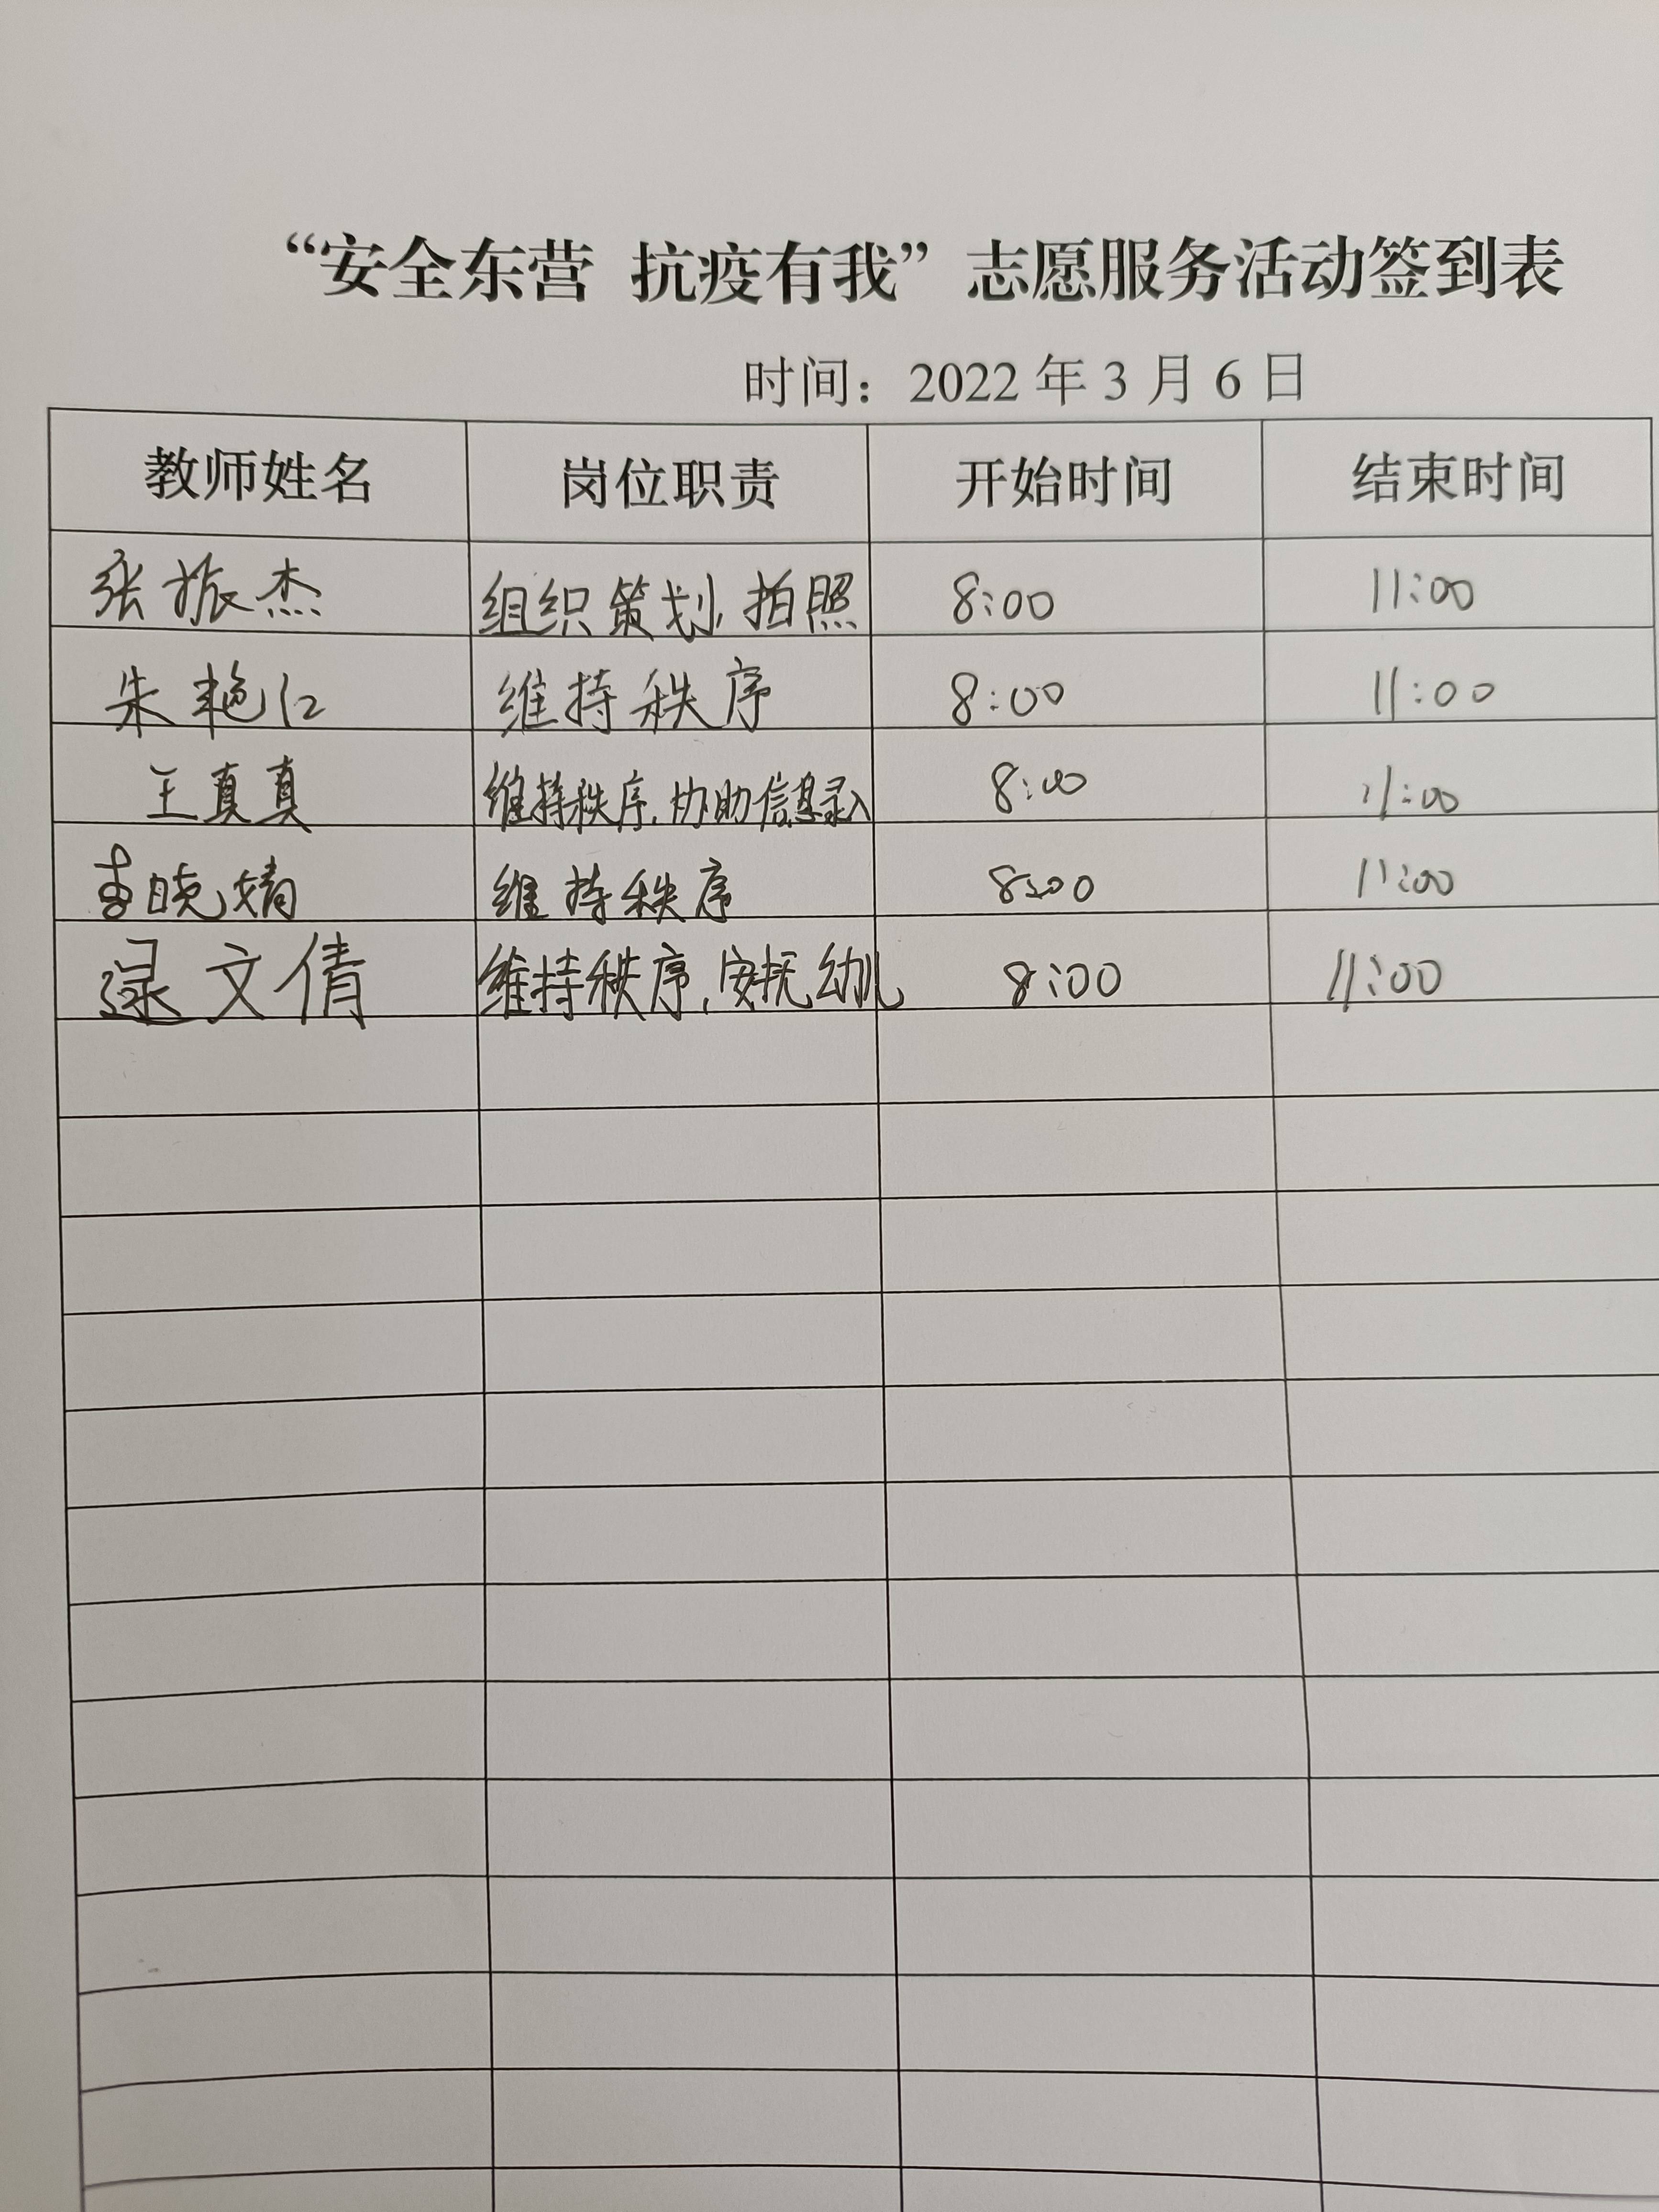 “安全东营 抗疫有我”志愿服务活动签到表
时间：2022 年 3 月 6 日
教师姓名 岗位职责 开始时间 结束时间
张振杰 组织策划,拍照 8:00 11:00
朱艳红 维持秩序 8:00 11:00
王真真 维持秩序,协助信息录入 8:00 11:00
李晓婧 维持秩序 8:00 11:00
逯文倩 维持秩序,安抚幼儿 8:00 11:00